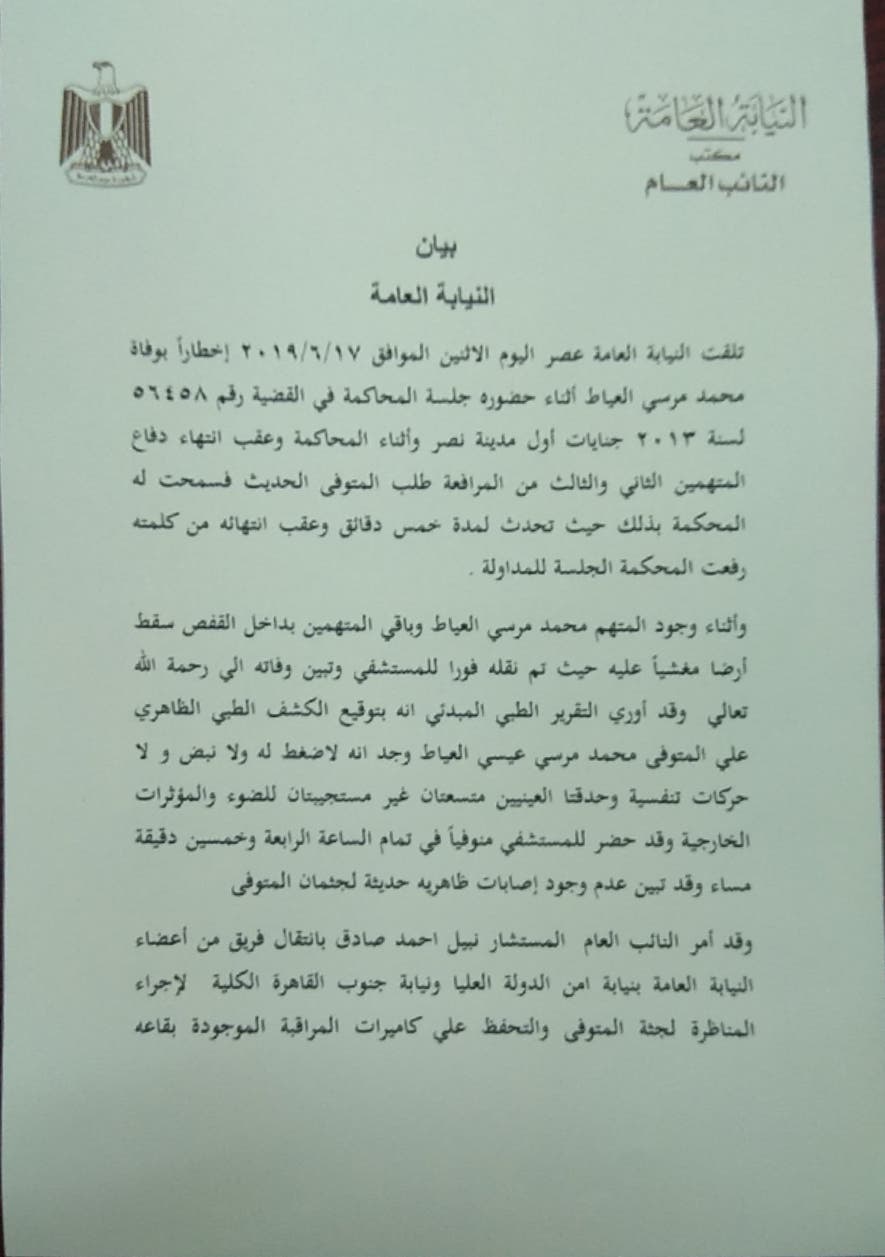 النيابة العامة
مكتب
النائب العام
بيان
النيابة العامة
تلقت النيابة العامة عصر اليوم الاثنين الموافق ٢٠١٩/٦/١٧ إخطاراً بوفاة
محمد مرسي العياط أثناء حضوره جلسة المحاكمة في القضية رقم ٥٦٤٥٨
لسنة ٢٠١٣ جنايات أول مدينة نصر وأثناء المحاكمة وعقب انتهاء دفاع
المتهمين الثاني والثالث من المرافعة طلب المتوفى الحديث فسمحت له
المحكمة بذلك حيث تحدث لمدة خمس دقائق وعقب انتهائه من كلمته
رفعت المحكمة الجلسة للمداولة .
وأثناء وجود المتهم محمد مرسي العياط وباقي المتهمين بداخل القفص سقط
أرضا مغشياً عليه حيث تم نقله فورا للمستشفي وتبين وفاته الي رحمة الله
تعالي وقد أوري التقرير الطبي المبدئي انه بتوقيع الكشف الطبي الظاهري
علي المتوفى محمد مرسي عيسي العياط وجد انه لاضغط له ولا نبض و لا
حركات تنفسية وحدقتا العينيين متسعتان غير مستجيبتان للضوء والمؤثرات
الخارجية وقد حضر للمستشفي متوفياً في تمام الساعة الرابعة وخمسين دقيقة
مساء وقد تبين عدم وجود إصابات ظاهريه حديثة لجثمان المتوفى
وقد أمر النائب العام المستشار نبيل احمد صادق بانتقال فريق من أعضاء
النيابة العامة بنيابة امن الدولة العليا ونيابة جنوب القاهرة الكلية لإجراء
المناظرة لجثة المتوفى والتحفظ علي كاميرات المراقبة الموجودة بقاعه